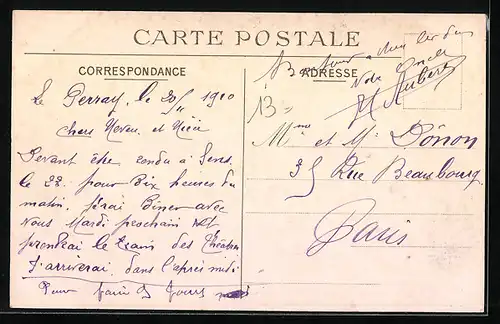 CARTE POSTALE
CORRESPONDANCE
ADRESSE
Le Perray, le 20/11 1910
chers Neveu et Nièce
Devant être rendu a Sens
le 22 pour Dix heures du
matin. J'irai Diner avec
Vous Mardi prochain et
prendrai le train des Théâtres
J'arriverai dans l'après midi
Pour faire
Bonjour a
Votre Oncle
H Aubert
Mme et Mr Dénon
35 Rue Beaubourg
Paris